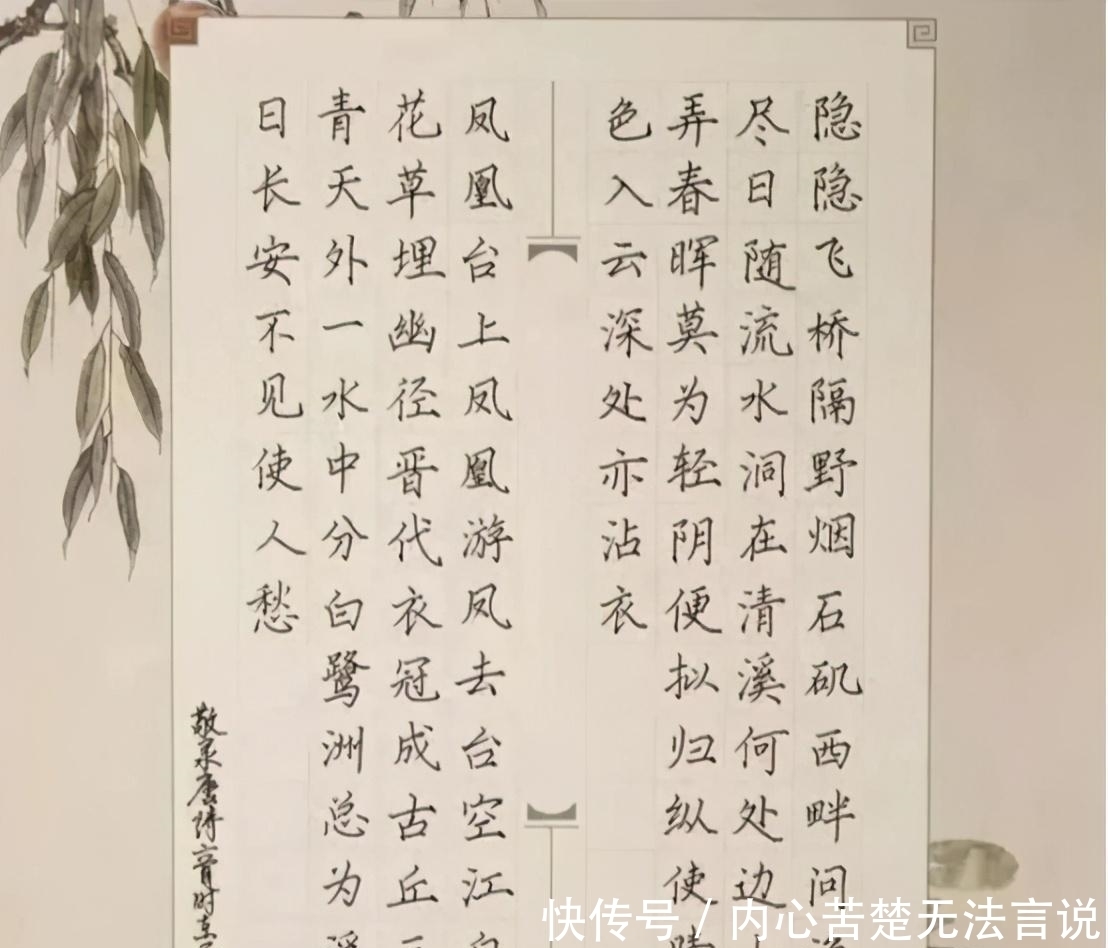 隐隐飞桥隔野烟石矶西畔问
尽日随流水洞在清溪何处边
弄春晖莫为轻阴便拟归纵使
色入云深处亦沾衣
凤凰台上凤凰游凤去台空江
花草埋幽径晋代衣冠成古丘
青天外一水中分白鹭洲总为
日长安不见使人愁
敬录唐诗二首时
快传号 / 内心苦楚无法言说